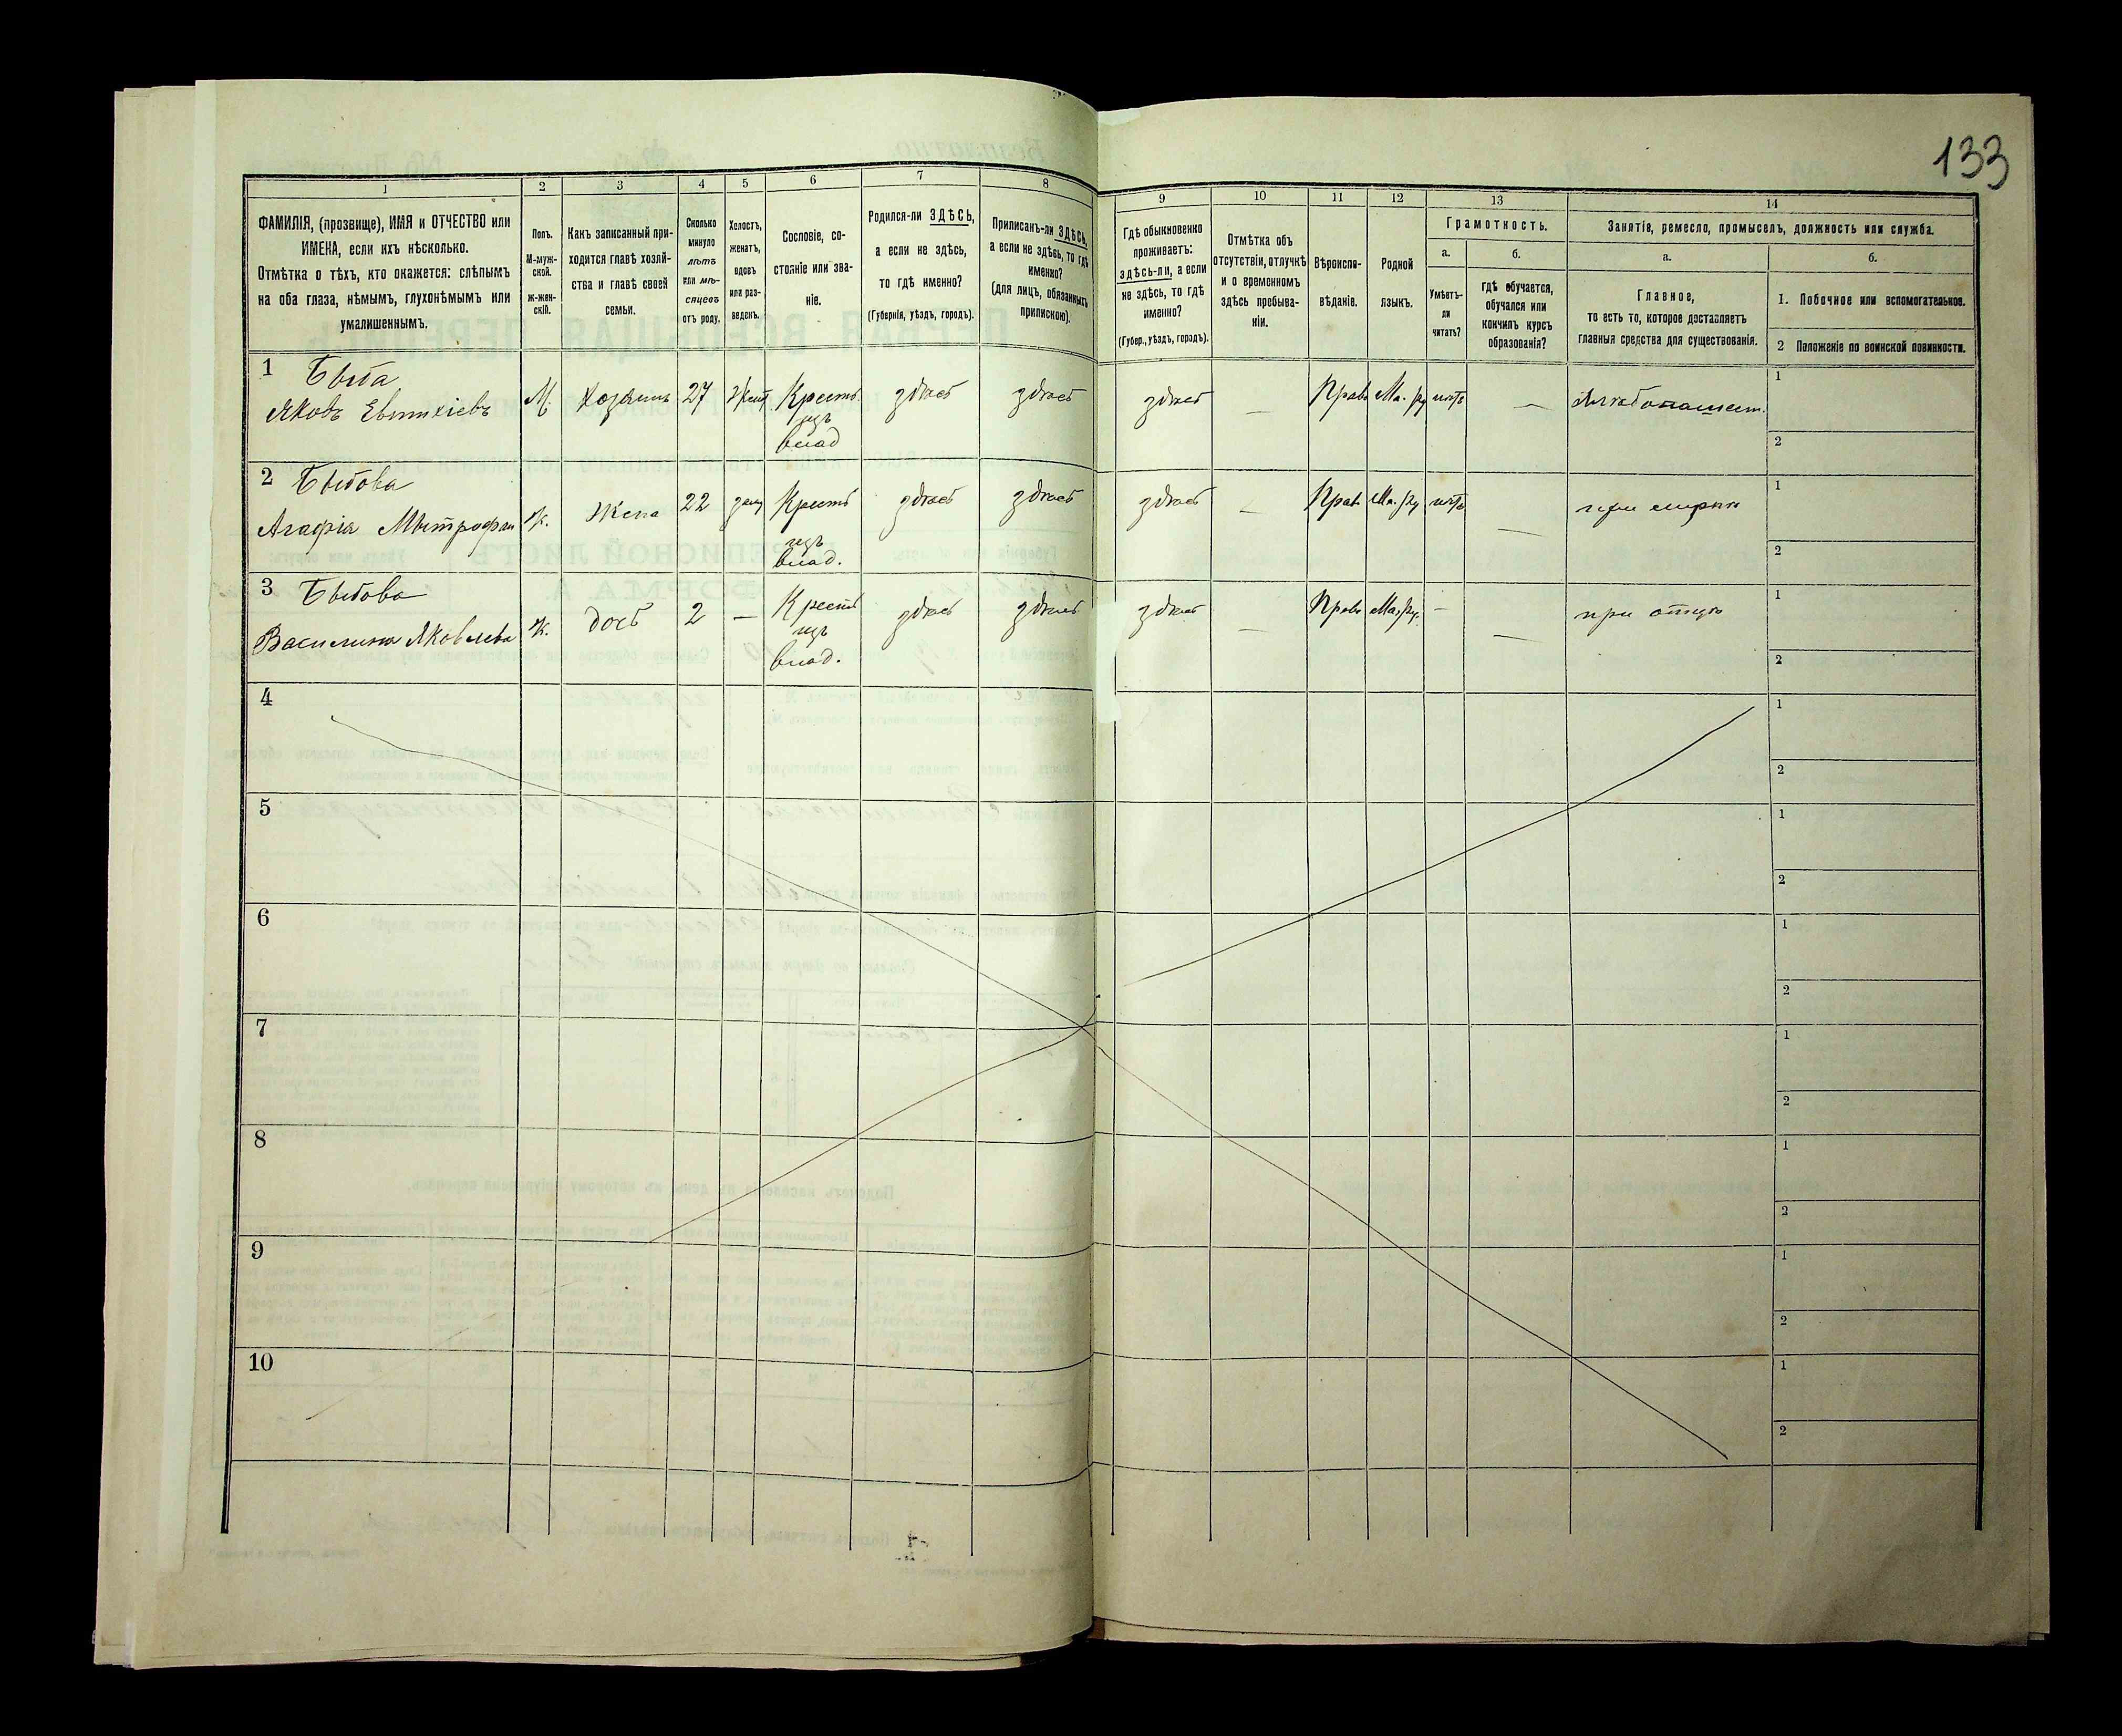 133
1
2
3
4
5
6
7
8
9
10
11
12
13
14
ФАМИЛІЯ, (прозвище), ИМЯ и ОТЧЕСТВО или
ИМЕНА, если ихъ нѣсколько.
Отмѣтка о тѣхъ, кто окажется: слѣпымъ
на оба глаза, нѣмымъ, глухонѣмымъ или
умалишеннымъ.
Полъ.
М-муж-
ской.
ж-жен-
скій.
Какъ записанный при-
ходится главѣ хозяй-
ства и главѣ своей
семьи.
Сколько
минуло
лѣтъ
или мѣ-
сяцевъ
отъ роду.
Холостъ,
женатъ,
вдовъ
или раз-
веденъ.
Сословіе, со-
стояніе или зва-
ніе.
Родился-ли ЗДѢСЬ,
а если не здѣсь,
то гдѣ именно?
(Губернія, уѣздъ, городъ).
Приписанъ-ли ЗДѢСЬ,
а если не здѣсь, то гдѣ
именно?
(для лицъ, обязанныхъ
припискою).
Гдѣ обыкновенно
проживаетъ:
здѣсь-ли, а если
не здѣсь, то гдѣ
именно?
(Губер., уѣздъ, городъ).
Отмѣтка объ
отсутствіи, отлучкѣ
и о временномъ
здѣсь пребыва-
ніи.
Вѣроиспо-
вѣданіе.
Родной
языкъ.
Грамотность.
а.
Умѣетъ-
ли
читать?
б.
гдѣ обучается,
обучался или
кончилъ курсъ
образованія?
Занятія, ремесло, промыселъ, должность или служба.
а.
Главное,
то есть то, которое доставляетъ
главныя средства для существованія.
б.
1. Побочное или вспомогательное.
2 Положеніе по воинской повинности.
1 Быба
Яковъ Евтихіевъ
М. Хозяинъ 27 Жен Крест. здѣсь здѣсь здѣсь — Прав. Ма. ру нѣтъ — Хлѣбопашест.
изъ
влад
1
2
2 Быбова
Агафія Митрофан
ж. Жена 22 зам Крест здѣсь здѣсь здѣсь — Прав. Ма. ру нѣтъ — при мужѣ
изъ
влад.
1
2
3 Быбова
Василина Яковлева
ж. дочь 2 — Крест здѣсь здѣсь здѣсь — Прав Ма. ру. — — при отцѣ
изъ
влад.
1
2
4
1
2
5
1
2
6
1
2
7
1
2
8
1
2
9
1
2
10
1
2